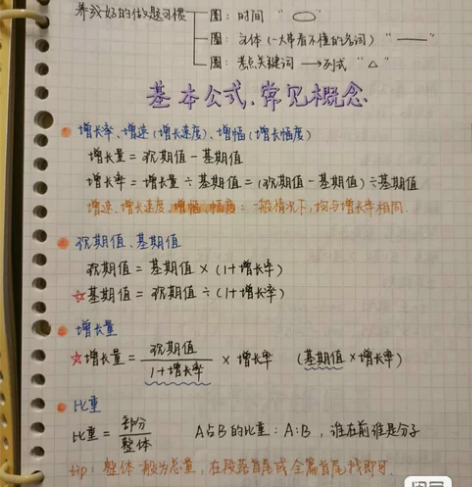 养成好的做题习惯
圈：时间 "○"
圈：主体（一大串看不懂的名词）"——"
圈：考点关键词 →列式 "△"
基本公式、常见概念
增长率、增速（增长速度）、增幅（增长幅度）
增长量 = 现期值 - 基期值
增长率 = 增长量 ÷ 基期值 = (现期值 - 基期值) ÷ 基期值
增速、增长速度、增幅、幅度：一般情况下，均与增长率相同.
现期值、基期值
现期值 = 基期值 × (1+增长率)
☆基期值 = 现期值 ÷ (1+增长率)
增长量
☆增长量 = 现期值/1+增长率 × 增长率 (基期值 × 增长率)
比重
比重 = 部分/整体 A占B的比重：A:B，谁在前谁是分子
tip：整体一般为总量，在段落首尾或全篇首尾找即可.